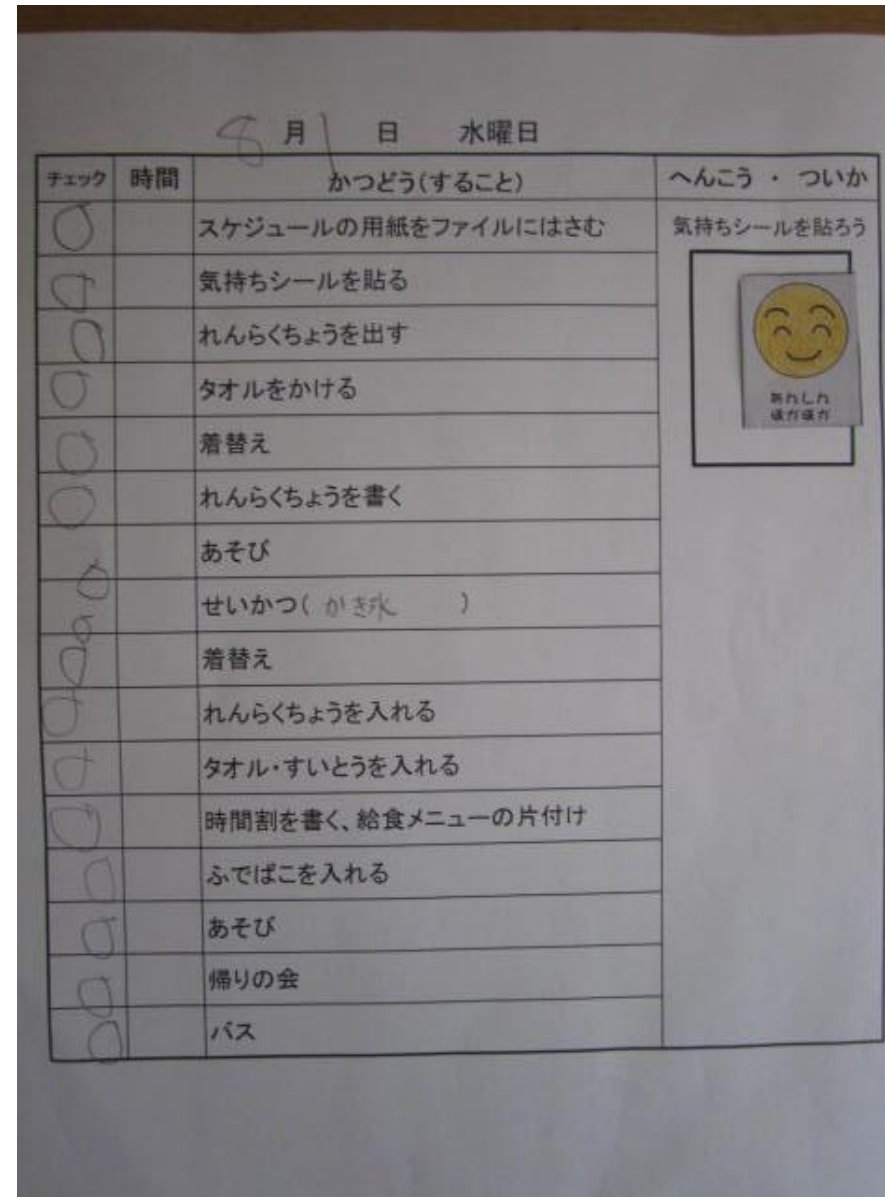 8月1日 水曜日
チェック 時間 かつどう(すること) へんこう ・ ついか
スケジュールの用紙をファイルにはさむ 気持ちシールを貼ろう
気持ちシールを貼る
れんらくちょうを出す
タオルをかける
あんしん
ほがほが
着替え
れんらくちょうを書く
あそび
せいかつ( かき氷 )
着替え
れんらくちょうを入れる
タオル・すいとうを入れる
時間割を書く、給食メニューの片付け
ふでばこを入れる
あそび
帰りの会
バス